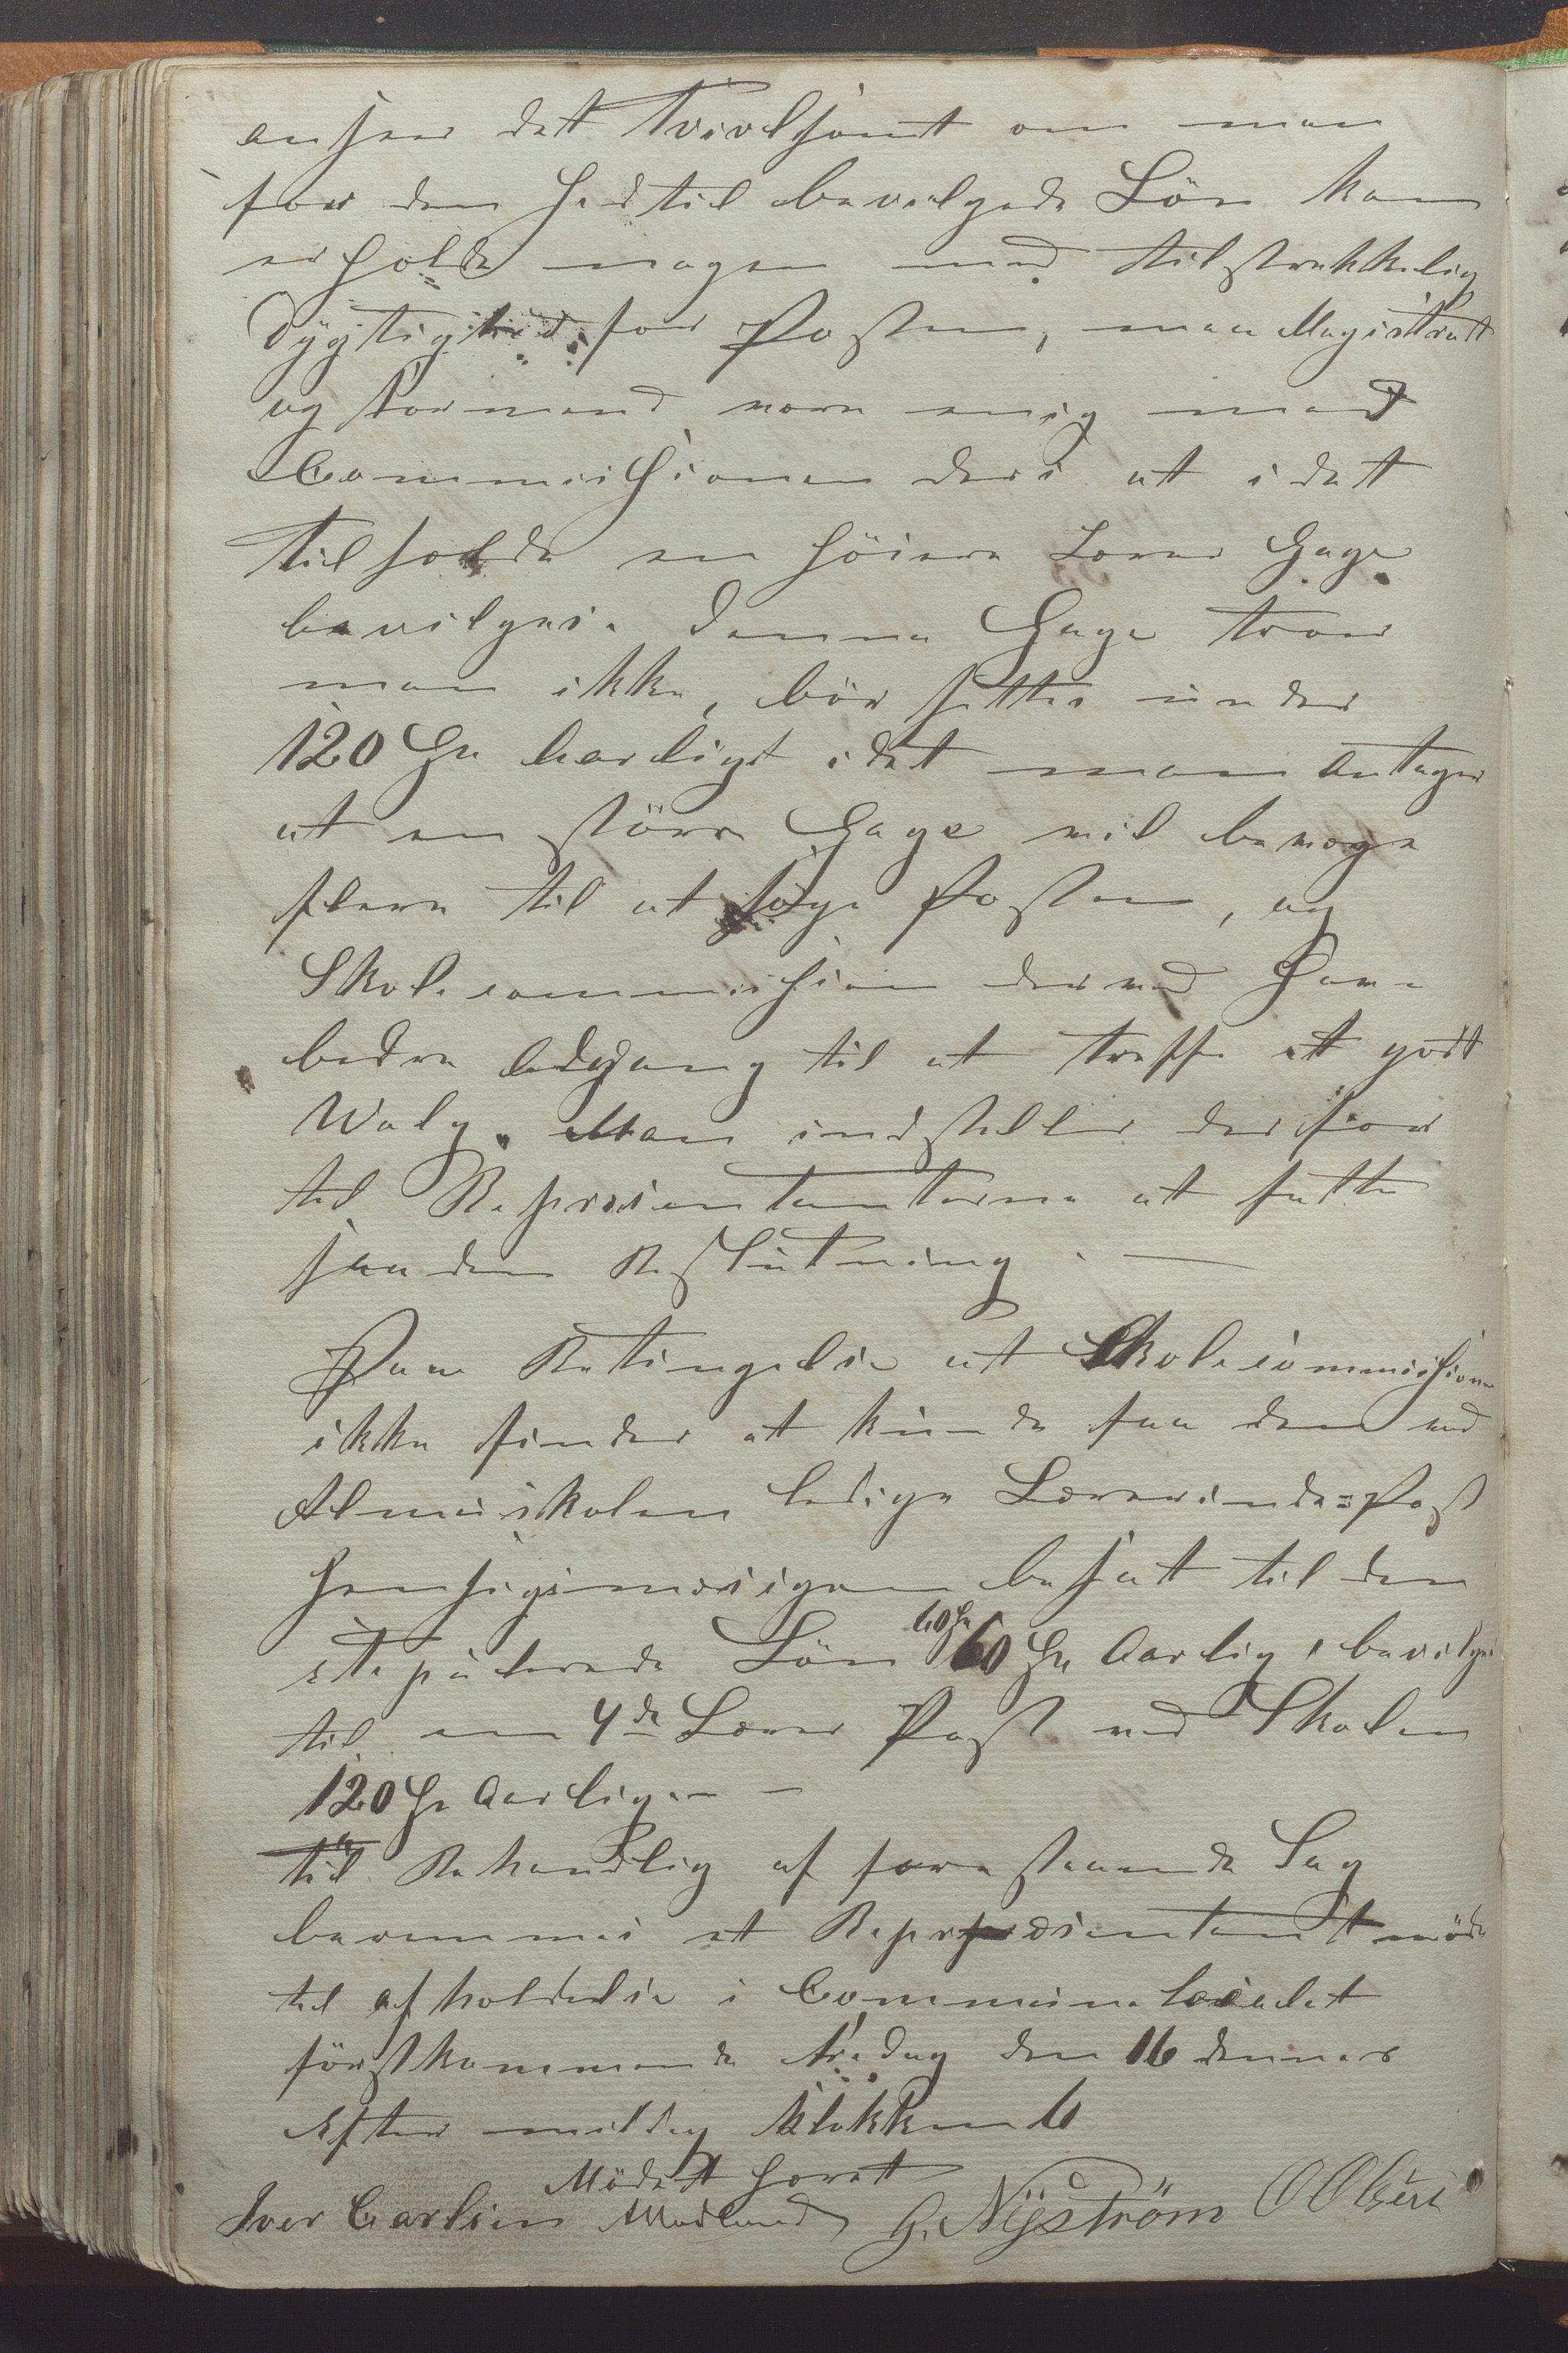 anseer det Tvivlsomt om man
for den hertil bevilgede Lön kan
erholde nogen med tilstrekkelig
Dygtighed for Posten, men Magistratt
og Formænd vare enig med
Commissionen deri at i det
tilfælde en höiere Lærer Gage
bevilges. Denne Gage troer
man ikke, bör settes under
120 Sp aarligt idet man antager
at en större Gage vil bevæge
flere til at söge Posten, og
Skolecommission derved have
bedre Adgang til at treffe et godt
Walg. Man indstiller derfor
til Representanterne at fatte
saadan Beslutning. —
Paa Betingelse at Skolecommissionen
ikke finder at kunde faa den ved
Almueskolen ledige Lærerinde=Post
hensigtsmæssigen besatt til den
stipulerede Lön 60 Sp 60 Sp Aarlig, bevilges
til en 4de Lærer Post ved Skolen
120 Sp Aarlig. —
til Behandlig af forestaaende Sag
berammes et Representantmöde
til afholdelse i Communelocalet
förstkommende Fredag den 16 dennes
Efter middag Klokken 6
Mödett hævet
Iver Carlsen Madland G. Nÿström